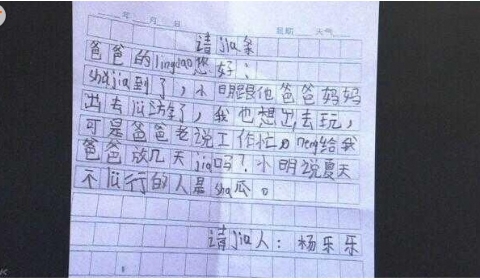 年 月 日 星期 天气
请jia条
爸爸的lingdao您好：
shujia到了，小明跟他爸爸妈妈
出去lü游了，我也想出去玩，
可是爸爸老说工作忙，neng给我
爸爸放几天jia吗？小明说夏天
不lü行的人是sha瓜。
请jia人：杨乐乐